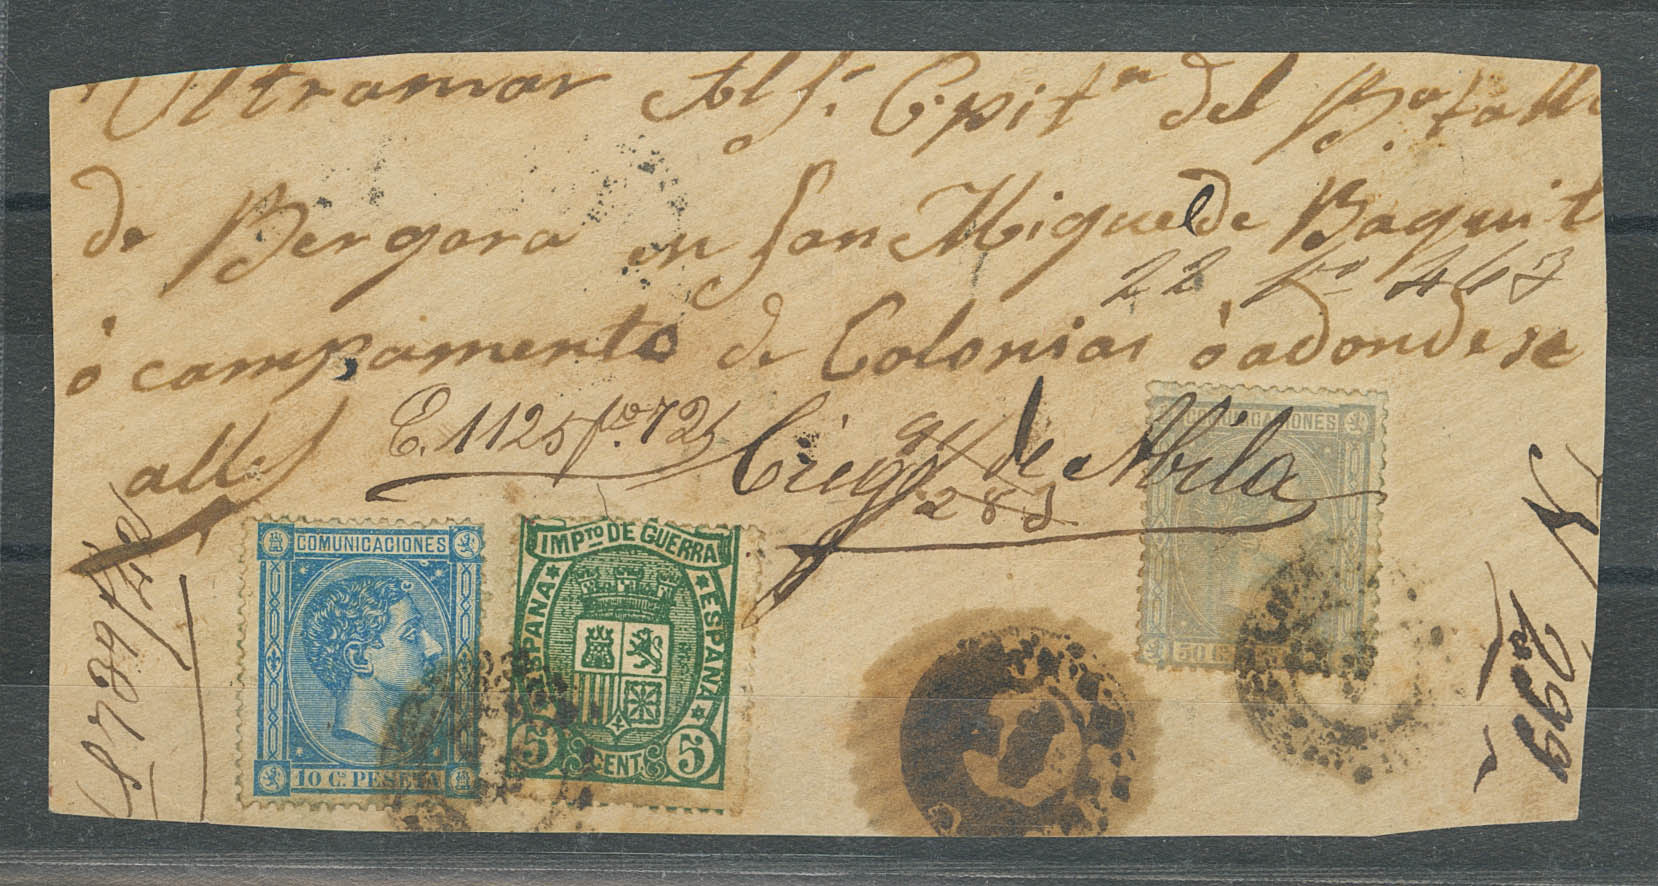 Ultramar Alf. Cpitn del Batall
de Bergara en San Miguel de Baquit
22 fo 463
ó campamento de Colonias ó adonde se
alle
E. 1125 fo. 725
Ciego de Abila
283
COMUNICACIONES
10 Cs. PESETA
IMPto DE GUERRA
ESPAÑA
ESPAÑA
5 CENT. 5
COMUNICACIONES
50 C
299